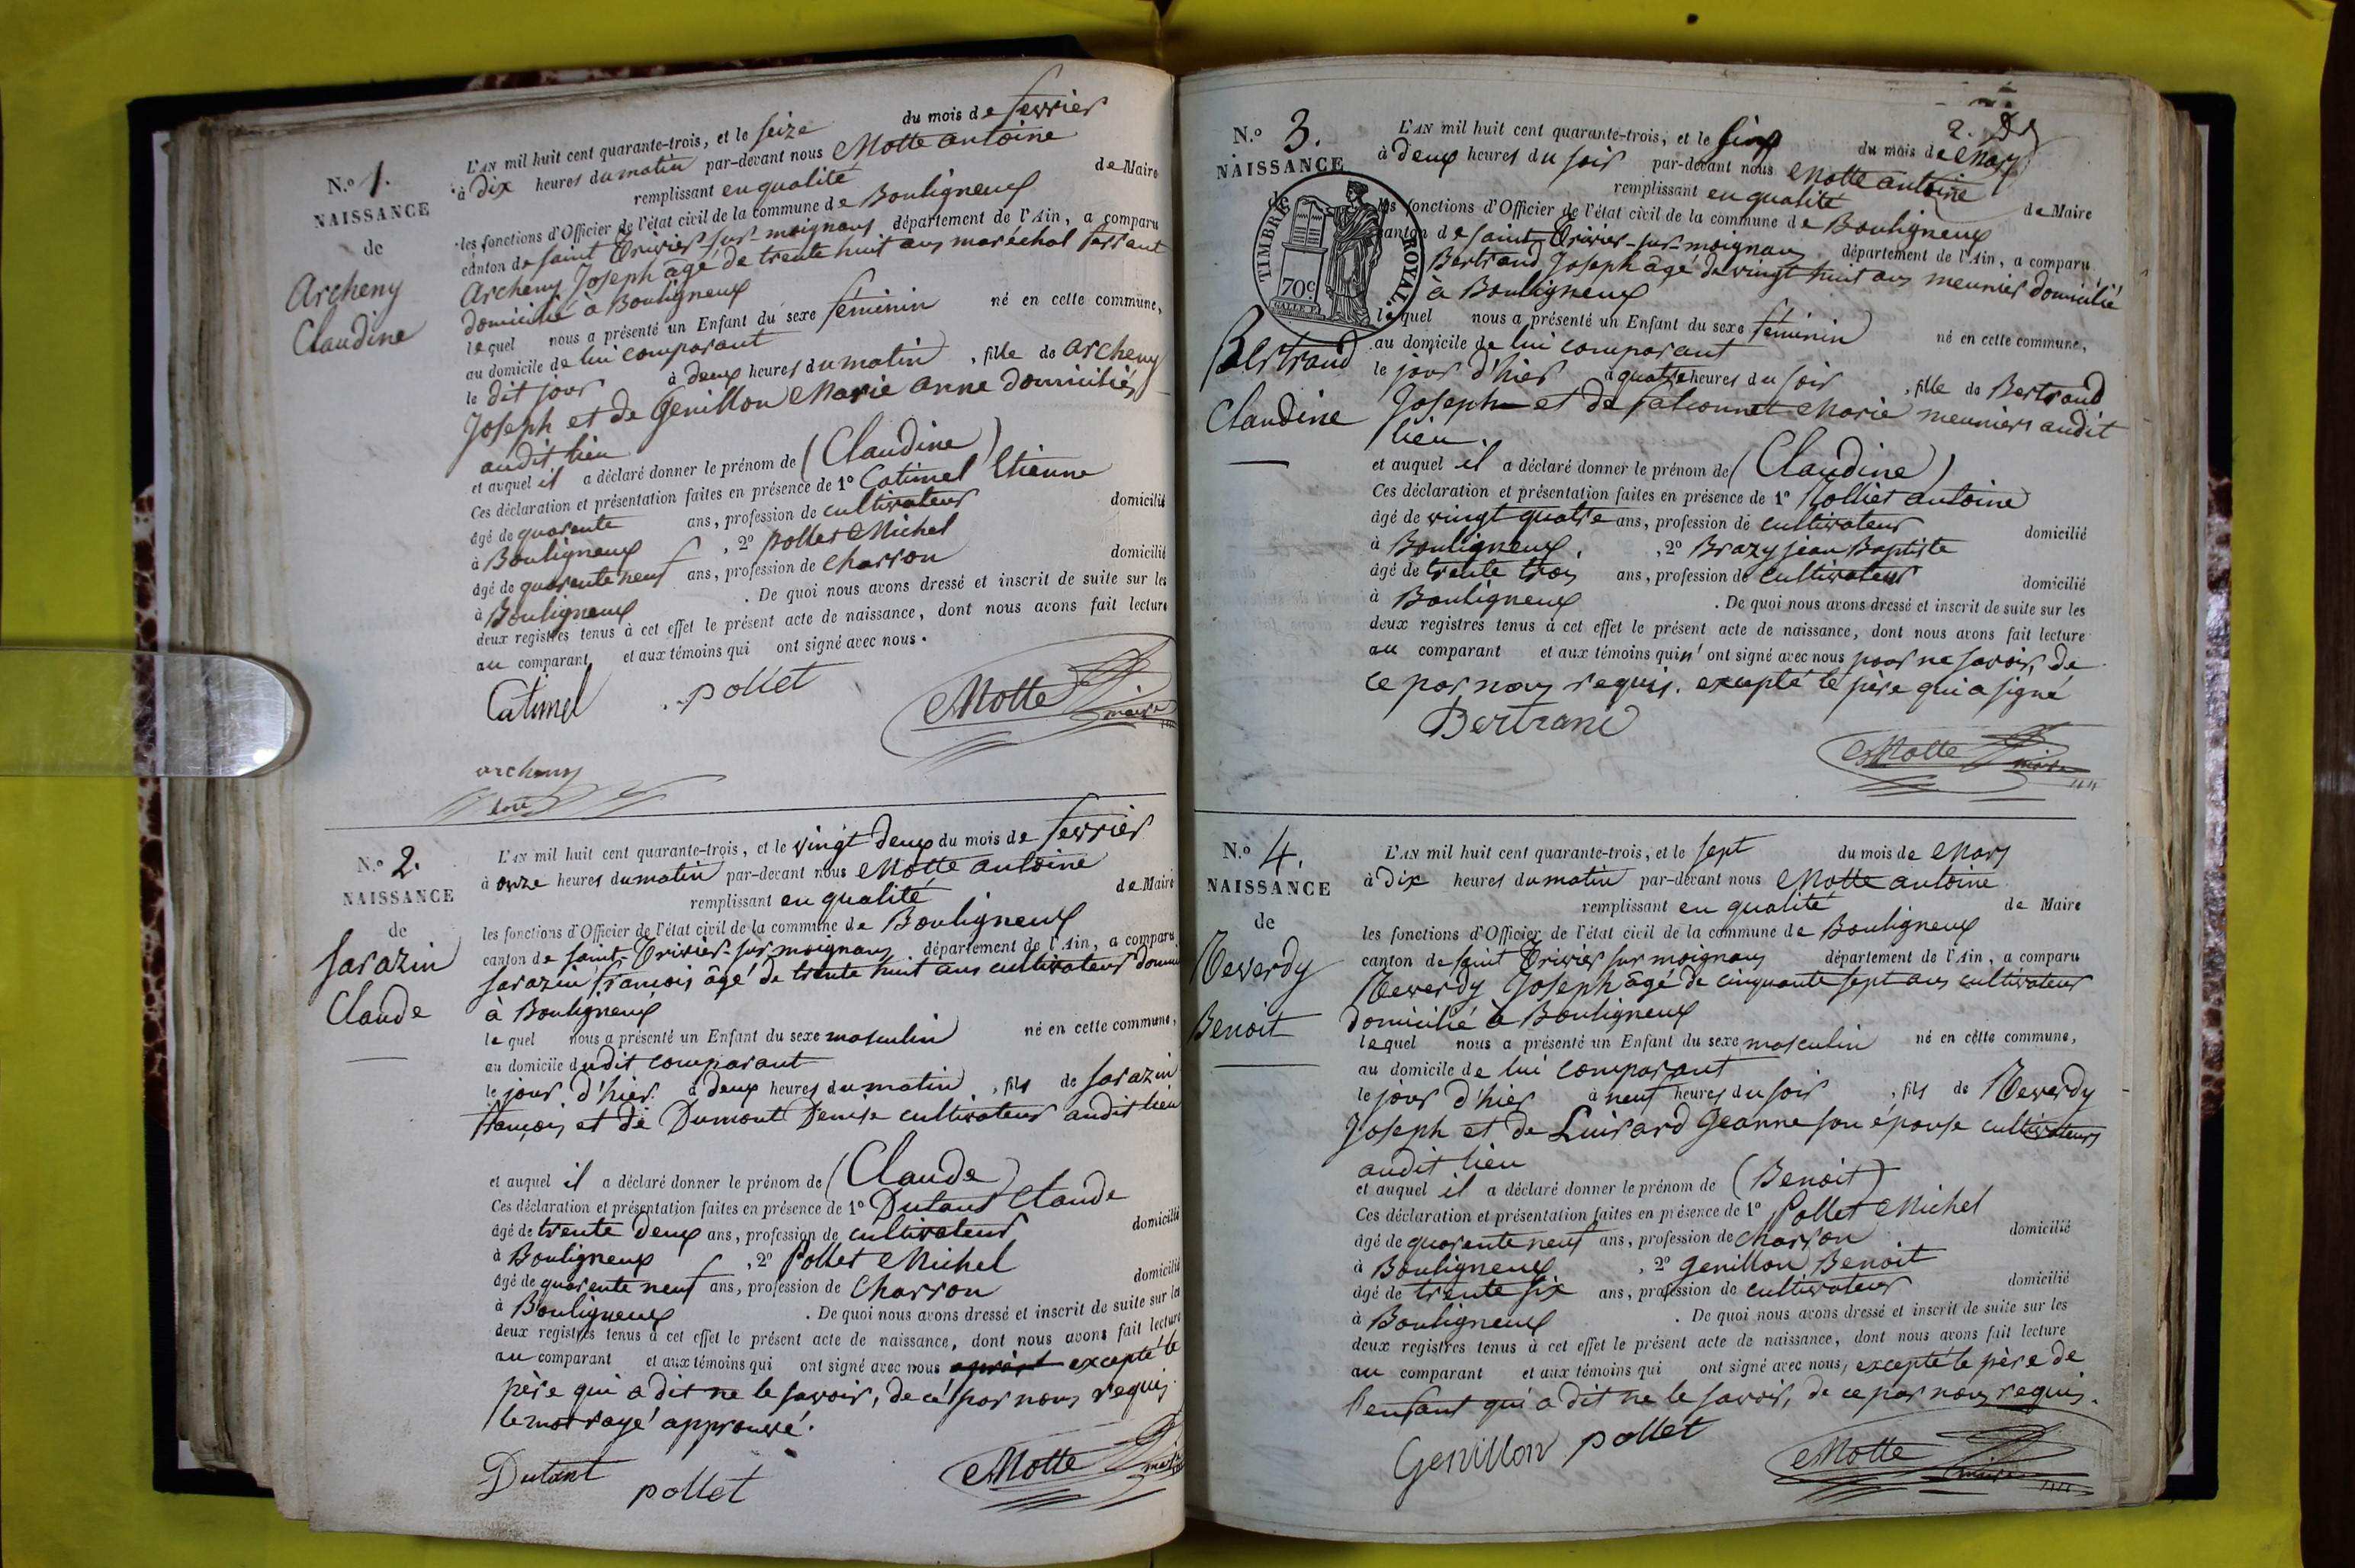 N.º 1.
NAISSANCE
de
Archeny
Claudine
L'AN mil huit cent quarante-trois, et le seize du mois de fevrier
à dix heures du matin par-devant nous Motte antoine
remplissant en qualité de Maire
les fonctions d'Officier de l'état civil de la commune de Bouligneux
canton de saint Trivier-sur-moignans département de l'Ain, a comparu
Archeny Joseph âgé de trente huit ans maréchal ferrant
domicilié à Bouligneux
lequel nous a présenté un Enfant du sexe féminin né en cette commune,
au domicile de lui comparant
le dit jour à deux heures du matin, fille de archeny
Joseph et de Genillon Marie anne domiciliés
audit lieu
et auquel il a déclaré donner le prénom de (Claudine)
Ces déclaration et présentation faites en présence de 1º Catimel Etienne
âgé de quarente ans, profession de cultivateur domicilié
à Bouligneux, 2º pollet Michel
âgé de quarente neuf ans, profession de charron domicilié
à Bouligneux. De quoi nous avons dressé et inscrit de suite sur les
deux registres tenus à cet effet le présent acte de naissance, dont nous avons fait lecture
au comparant et aux témoins qui ont signé avec nous.
Catimel pollet Motte maire
archeny
N.º 2.
NAISSANCE
de
Sarazin
Claude
L'AN mil huit cent quarante-trois, et le vingt deux du mois de fevrier
à onze heures du matin par-devant nous Motte antoine
remplissant en qualité de Maire
les fonctions d'Officier de l'état civil de la commune de Bouligneux
canton de saint-Trivier-sur moignans département de l'Ain, a comparu
sarazin françois âgé de trente huit ans cultivateur
à Bouligneux
lequel nous a présenté un Enfant du sexe masculin né en cette commune,
au domicile dudit comparant
le jour d'hier à deux heures du matin, fils de sarazin
françois et de Dumont Denise cultivateur audit lieu
et auquel il a déclaré donner le prénom de (Claude)
Ces déclaration et présentation faites en présence de 1º Dutant Claude
âgé de trente deux ans, profession de cultivateur domicilié
à Bouligneux, 2º Pollet Michel
âgé de quarente neuf ans, profession de Charron domicilié
à Bouligneux. De quoi nous avons dressé et inscrit de suite sur les
deux registres tenus à cet effet le présent acte de naissance, dont nous avons fait lecture
au comparant et aux témoins qui ont signé avec nous excepté le
père qui a dit ne le savoir, de cé par nous requis.
le mot rayé approuvé.
Dutant pollet Motte maire
2.
N.º 3.
NAISSANCE
de
TIMBRE ROYAL.
70c
Bertrand
Claudine
L'AN mil huit cent quarante-trois, et le cinq du mois de Mars
à deux heures du soir par-devant nous Motte antoine
remplissant en qualité de Maire
les fonctions d'Officier de l'état civil de la commune de Bouligneux
canton de saint-Trivier-sur-moignans département de l'Ain, a comparu
Bertrand Joseph âgé de vingt huit ans meunier domicilié
à Bouligneux
lequel nous a présenté un Enfant du sexe féminin né en cette commune,
au domicile de lui comparant
le jour d'hier à quatre heures du soir, fille de Bertrand
Joseph et de falconnet Marie meuniers audit
lieu.
et auquel il a déclaré donner le prénom de (Claudine)
Ces déclaration et présentation faites en présence de 1º Rollier antoine
âgé de vingt quatre ans, profession de cultivateur domicilié
à Bouligneux, 2º Brazy jean Baptiste
âgé de trente trois ans, profession de cultivateur domicilié
à Bouligneux. De quoi nous avons dressé et inscrit de suite sur les
deux registres tenus à cet effet le présent acte de naissance, dont nous avons fait lecture
au comparant et aux témoins qui n'ont signé avec nous pour ne savoir, de
ce par nous requis. excepté le père qui a signé
Bertrand
Motte maire
N.º 4.
NAISSANCE
de
Reverdy
Benoit
L'AN mil huit cent quarante-trois, et le sept du mois de Mars
à dix heures du matin par-devant nous Motte antoine
remplissant en qualité de Maire
les fonctions d'Officier de l'état civil de la commune de Bouligneux
canton de saint Trivier sur moignans département de l'Ain, a comparu
Reverdy Joseph âgé de cinquante sept ans cultivateur
domicilié à Bouligneux
lequel nous a présenté un Enfant du sexe masculin né en cette commune,
au domicile de lui comparant
le jour d'hier à neuf heures du soir, fils de Reverdy
Joseph et de Luirard Jeanne son épouse cultivateurs
audit lieu
et auquel il a déclaré donner le prénom de (Benoit)
Ces déclaration et présentation faites en présence de 1º Pollet Michel
âgé de quarente neuf ans, profession de charron domicilié
à Bouligneux, 2º genillon Benoit
âgé de trente six ans, profession de cultivateur domicilié
à Bouligneux. De quoi nous avons dressé et inscrit de suite sur les
deux registres tenus à cet effet le présent acte de naissance, dont nous avons fait lecture
au comparant et aux témoins qui ont signé avec nous, excepté le père de
l'enfant qui a dit ne le savoir, de ce par nous requis.
Genillon pollet Motte maire